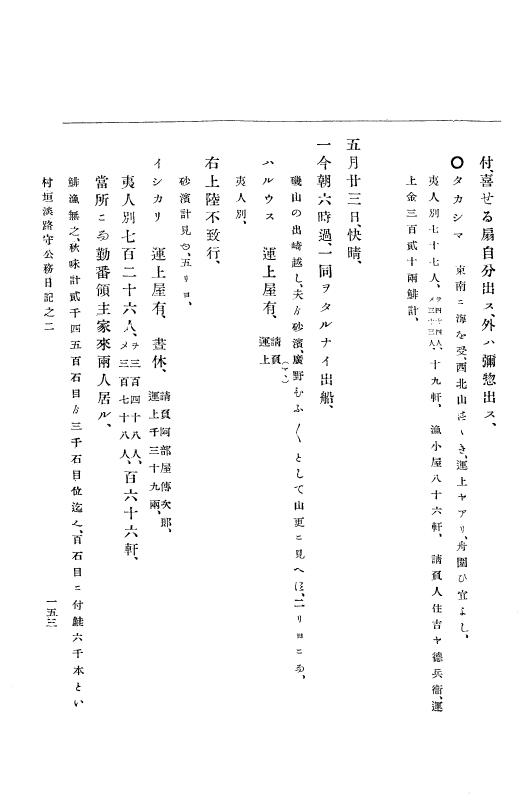 付、喜せる扇自分出ス、外ハ彌惣出ス、
〇タカシマ 東南ニ海を受、西北山つゝき、運上ヤアリ、舟圍ひ宜よし、
夷人別七十七人、ヲ四十四人、メ三十三人、十九軒、 漁小屋八十六軒、 請負人住吉ヤ德兵衞、運
上金三百貳十兩鯡計、
五月廿三日、快晴、
一今朝六時過、一同ヲタルナイ出船、
磯山の出崎越し、夫ゟ砂濱、廣野もふ〳〵として山更ニ見へ
ハルウス 運上屋有、 請負(マヽ) 運上
夷人別、
右上陸不致行、
砂濱計見る、五リヨ、
イシカリ 運上屋有、 晝休、 請負阿部屋傳次郎、 運上千三十九兩、
夷人別七百二十六人、ヲ三百四十八人、メ三百七十八人、百六十六軒、
當所ニ勤番領主家來兩人居ル、
鯡漁無之、秋味計貳千四五百石目ゟ三千石目位迄之、百石目ニ付鮭六千本とい
村垣淡路守公務日記之二
一五三